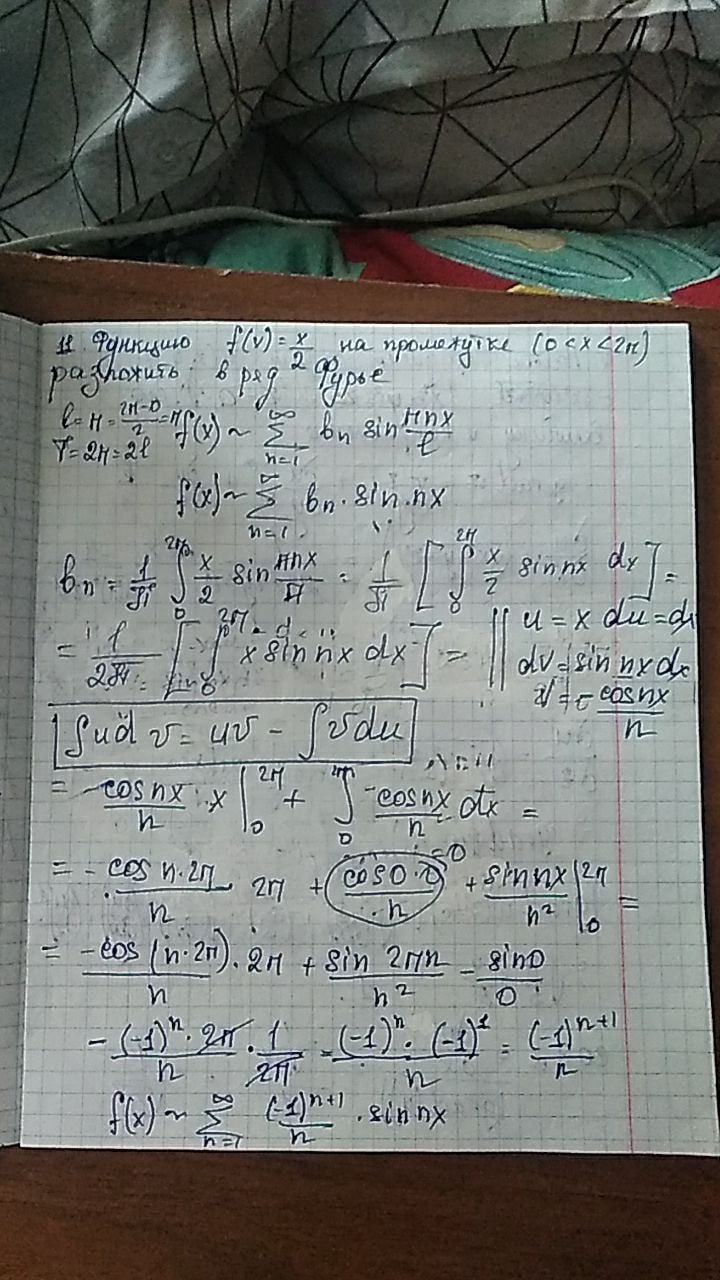 11. Функцию f(x) = x/2 на промежутке (0 < x < 2π)
разложить в ряд Фурье
l = π = (2π-0)/2 = π f(x) ~ ∑_{n=1}^{∞} b_n sin πnx/l
T = 2π = 2l
f(x) ~ ∑_{n=1}^{∞} b_n · sin nx
b_n = 1/π ∫_0^{2π} x/2 sin πnx/π = 1/π [ ∫_0^{2π} x/2 sin nx dx ] =
= 1/2π [ ∫_0^{2π} x sin nx dx ] = || u = x du = dx
dv = sin nx dx
v = - cos nx / n
∫ u d v = uv - ∫ v du
= - cos nx / n · x |_0^{2π} + ∫_0^{2π} - cos nx / n dx =
= - cos n·2π / n 2π + cos 0·0 / n =0 + sin nx / n² |_0^{2π} =
= - cos (n·2π) / n · 2π + sin 2πn / n² - sin 0 / 0
- (-1)^n · 2π / n · 1/2π = (-1)^n · (-1)^1 / n = (-1)^{n+1} / n
f(x) ~ ∑_{n=1}^{∞} (-1)^{n+1} / n · sin nx